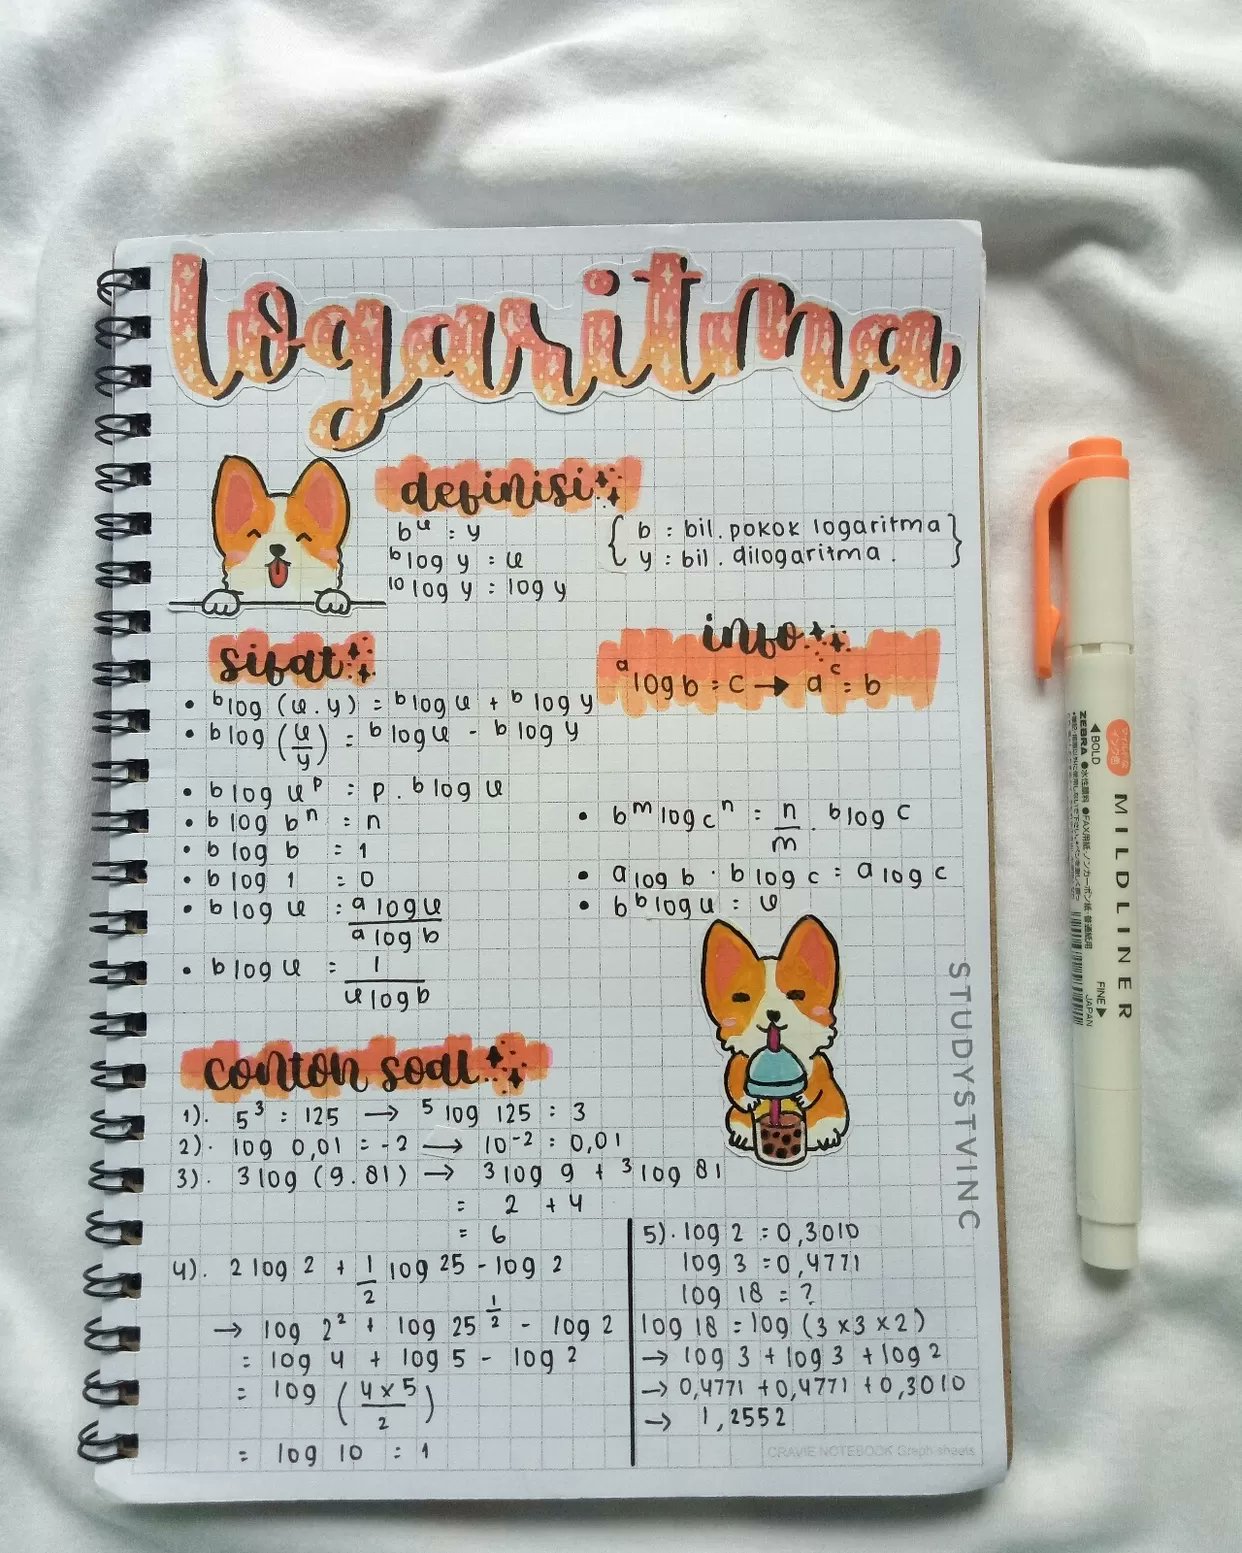 logaritma
definisi
bᵘ = y
ᵇlog y = u
¹⁰log y = log y
{ b : bil. pokok logaritma }
{ y : bil. dilogaritma. }
sifat
• ᵇlog (u.y) = ᵇlog u + ᵇlog y
• ᵇlog (u/y) = ᵇlog u - ᵇlog y
• ᵇlog uᵖ = p . ᵇlog u
• ᵇlog bⁿ = n
• ᵇlog b = 1
• ᵇlog 1 = 0
• ᵇlog u = ᵃlog u / ᵃlog b
• ᵇlog u = 1 / ᵘlog b
info
ᵃlog b = c → aᶜ = b
• bᵐ log cⁿ = n/m . ᵇlog c
• ᵃlog b . ᵇlog c = ᵃlog c
• b ᵇlog u = u
contoh soal
1). 5³ = 125 → ⁵log 125 = 3
2). log 0,01 = -2 → 10⁻² = 0,01
3). 3log (9.81) → ³log 9 + ³log 81
= 2 + 4
= 6
4). 2 log 2 + 1/2 log 25 - log 2
→ log 2² + log 25^1/2 - log 2
= log 4 + log 5 - log 2
= log (4x5/2)
= log 10 = 1
5). log 2 = 0,3010
log 3 = 0,4771
log 18 = ?
log 18 = log (3x3x2)
→ log 3 + log 3 + log 2
→ 0,4771 + 0,4771 + 0,3010
→ 1,2552
CRAVIE NOTEBOOK Graph sheets
STUDYSTVINC
◀BOLD
ZEBRA
MILDLINER
FINE▶
JAPAN